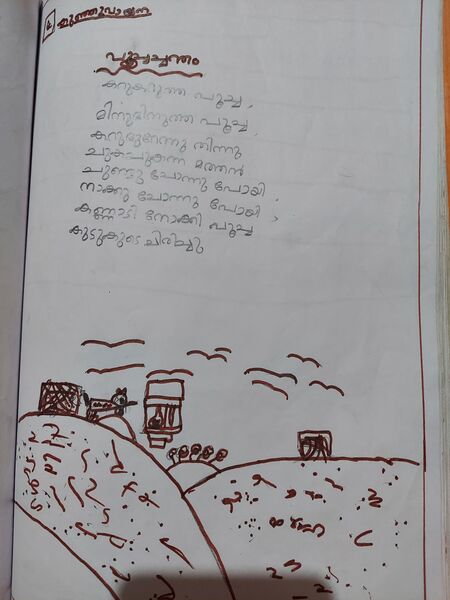 പൂച്ചച്ചന്തം
കറുകറുത്ത പൂച്ച ,
മിനുമിനുത്ത പൂച്ച ,
കറുമുറേന്നു തിന്നു
ചുകചുകന്ന മത്തൻ
ചുണ്ടു ചോന്നു പോയി .
നാക്കു ചോന്നു പോയി .
കണ്ണാടി നോക്കി പൂച്ച
കുടുകുടെ ചിരിച്ചു